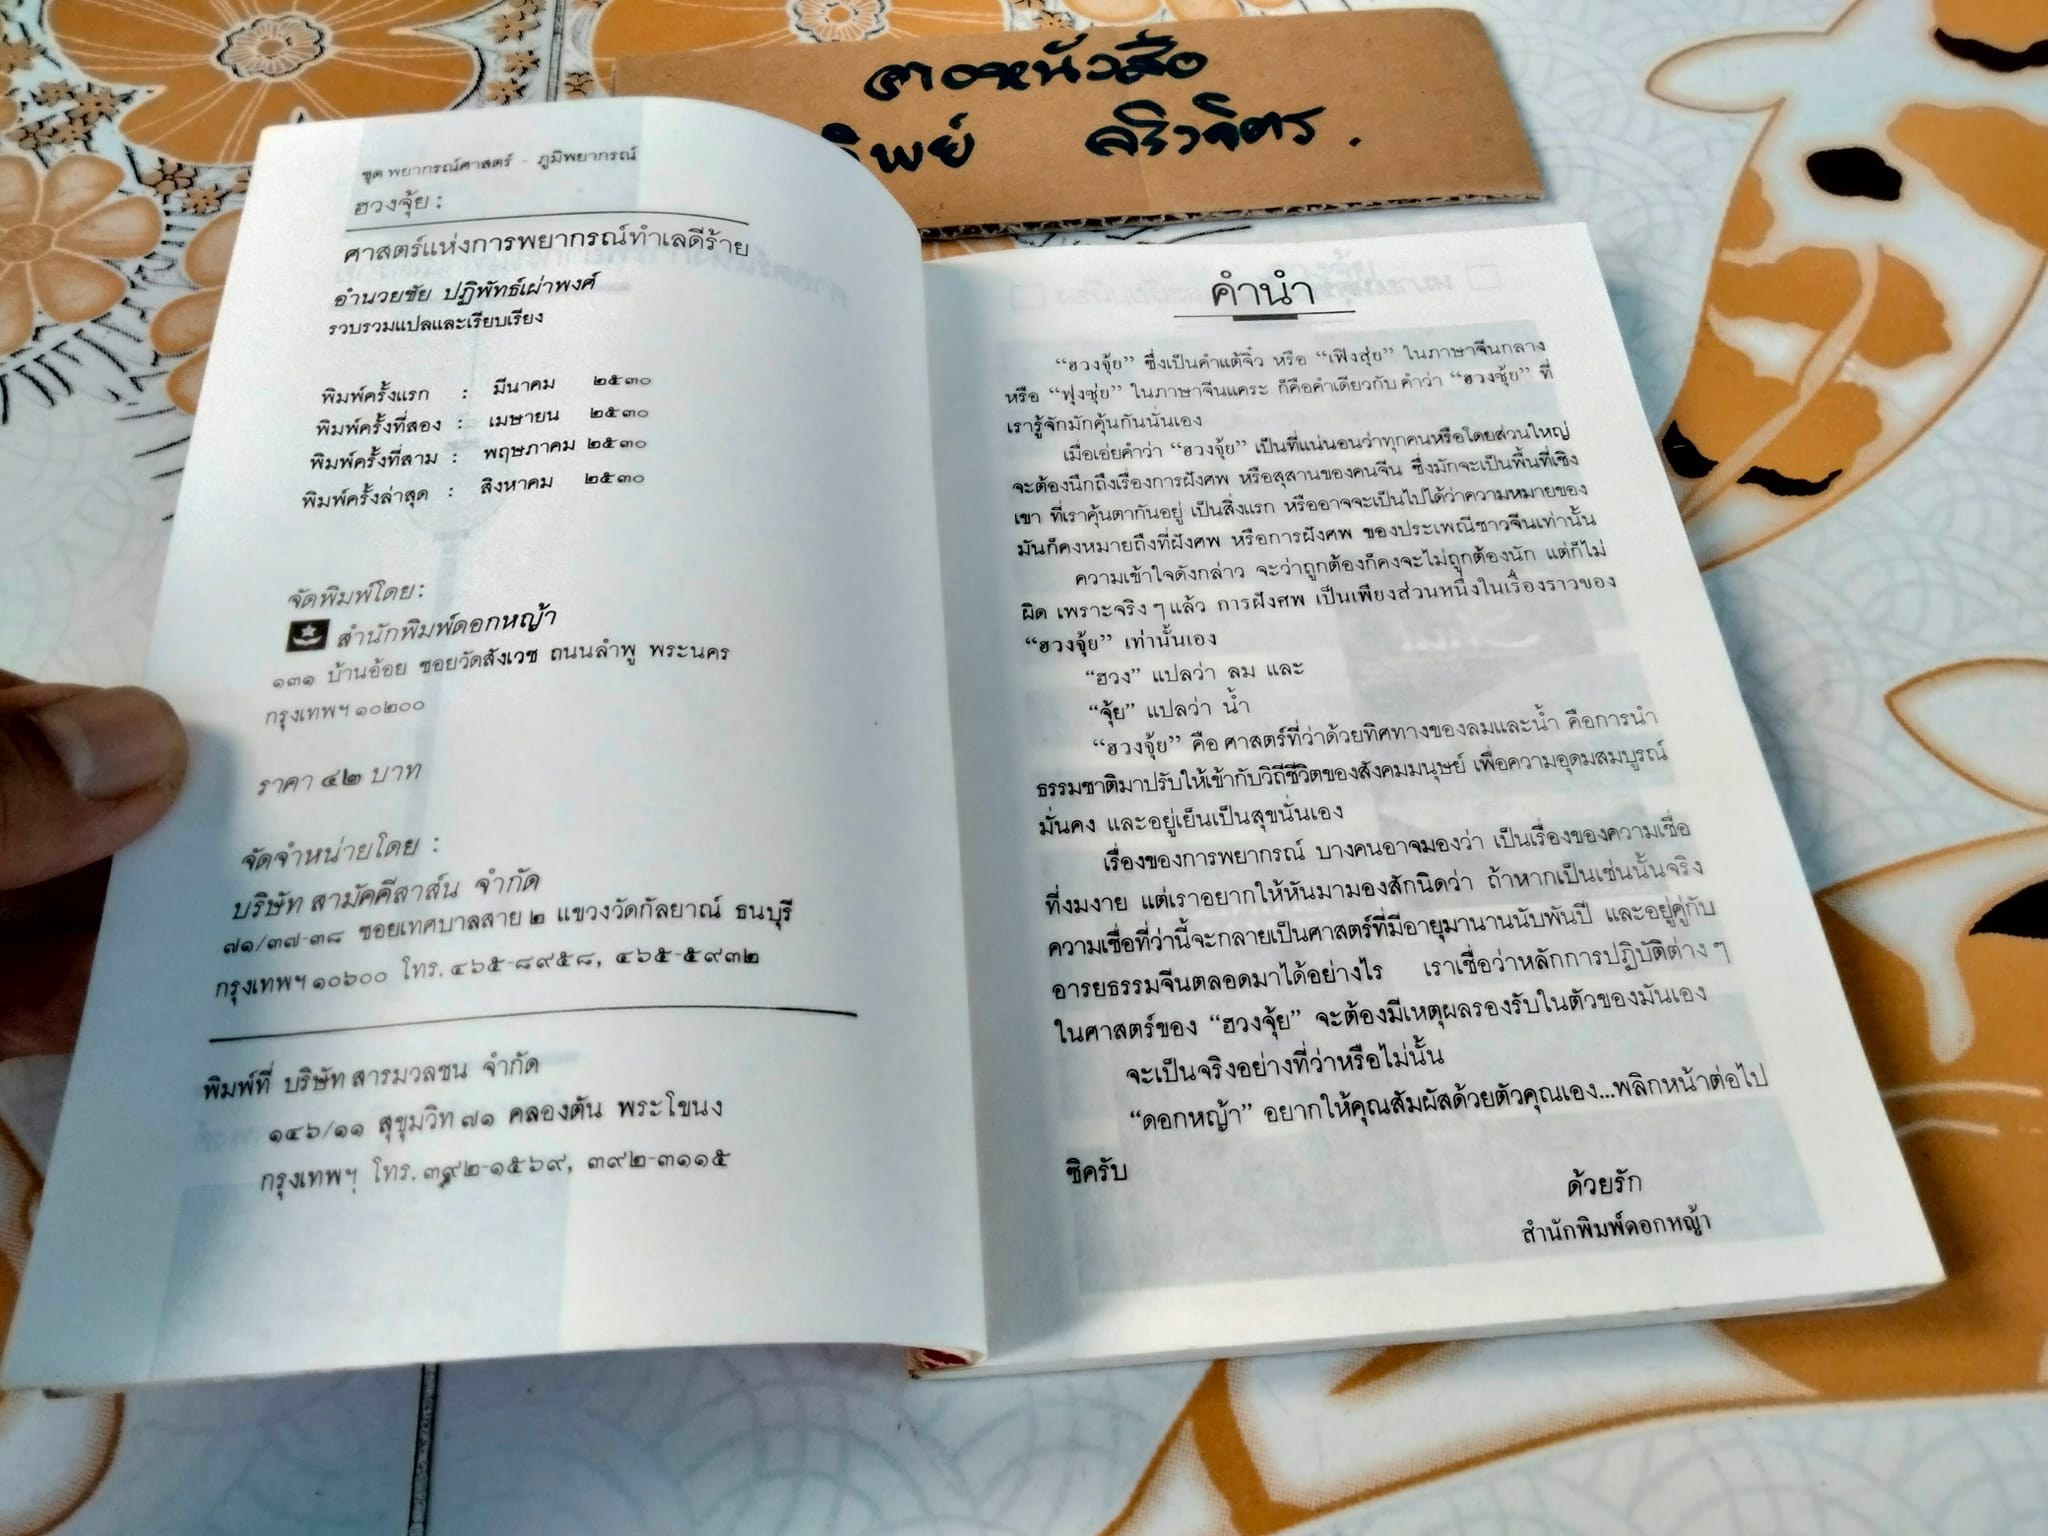 ลาดหนังสือ
ทิพย์ ศริวจิตร.
ชุด พยากรณ์ศาสตร์ - ภูมิพยากรณ์
ฮวงจุ้ย :
ศาสตร์แห่งการพยากรณ์ทำเลดีร้าย
อำนวยชัย ปฏิพัทธ์เผ่าพงศ์
รวบรวมแปลและเรียบเรียง
พิมพ์ครั้งแรก : มีนาคม ๒๕๓๐
พิมพ์ครั้งที่สอง : เมษายน ๒๕๓๐
พิมพ์ครั้งที่สาม : พฤษภาคม ๒๕๓๐
พิมพ์ครั้งล่าสุด : สิงหาคม ๒๕๓๐
จัดพิมพ์โดย :
สำนักพิมพ์ดอกหญ้า
๑๓๑ บ้านอ้อย ซอยวัดสังเวช ถนนลำพู พระนคร
กรุงเทพฯ ๑๐๒๐๐
ราคา ๔๒ บาท
จัดจำหน่ายโดย :
บริษัท สามัคคีสาส์น จำกัด
๗๑/๓๗-๓๘ ซอยเทศบาลสาย ๒ แขวงวัดกัลยาณ์ ธนบุรี
กรุงเทพฯ ๑๐๖๐๐ โทร. ๔๖๕-๘๙๕๘, ๔๖๕-๕๙๓๒
พิมพ์ที่ บริษัท สารมวลชน จำกัด
๑๔๖/๑๑ สุขุมวิท ๗๑ คลองตัน พระโขนง
กรุงเทพฯ โทร. ๓๙๒-๑๕๖๙, ๓๙๒-๓๑๑๕
คำนำ
“ฮวงจุ้ย” ซึ่งเป็นคำแต้จิ๋ว หรือ “เฟิงสุ่ย” ในภาษาจีนกลาง
หรือ “ฟุงซุ่ย” ในภาษาจีนแคระ ก็คือคำเดียวกับ คำว่า “ฮวงซุ้ย” ที่
เรารู้จักมักคุ้นกันนั่นเอง
เมื่อเอ่ยคำว่า “ฮวงจุ้ย” เป็นที่แน่นอนว่าทุกคนหรือโดยส่วนใหญ่
จะต้องนึกถึงเรื่องการฝังศพ หรือสุสานของคนจีน ซึ่งมักจะเป็นพื้นที่เชิง
เขา ที่เราคุ้นตากันอยู่ เป็นสิ่งแรก หรืออาจจะเป็นไปได้ว่าความหมายของ
มันก็คงหมายถึงที่ฝังศพ หรือการฝังศพ ของประเพณีชาวจีนเท่านั้น
ความเข้าใจดังกล่าว จะว่าถูกต้องก็คงจะไม่ถูกต้องนัก แต่ก็ไม่
ผิด เพราะจริง ๆ แล้ว การฝังศพ เป็นเพียงส่วนหนึ่งในเรื่องราวของ
“ฮวงจุ้ย” เท่านั้นเอง
“ฮวง” แปลว่า ลม และ
“จุ้ย” แปลว่า น้ำ
“ฮวงจุ้ย” คือ ศาสตร์ที่ว่าด้วยทิศทางของลมและน้ำ คือการนำ
ธรรมชาติมาปรับให้เข้ากับวิถีชีวิตของสังคมมนุษย์ เพื่อความอุดมสมบูรณ์
มั่นคง และอยู่เย็นเป็นสุขนั่นเอง
เรื่องของการพยากรณ์ บางคนอาจมองว่า เป็นเรื่องของความเชื่อ
ที่งมงาย แต่เราอยากให้หันมามองสักนิดว่า ถ้าหากเป็นเช่นนั้นจริง
ความเชื่อที่ว่านี้จะกลายเป็นศาสตร์ที่มีอายุมานานนับพันปี และอยู่คู่กับ
อารยธรรมจีนตลอดมาได้อย่างไร เราเชื่อว่าหลักการปฏิบัติต่าง ๆ
ในศาสตร์ของ “ฮวงจุ้ย” จะต้องมีเหตุผลรองรับในตัวของมันเอง
จะเป็นจริงอย่างที่ว่าหรือไม่นั้น
“ดอกหญ้า” อยากให้คุณสัมผัสด้วยตัวคุณเอง...พลิกหน้าต่อไป
ซิครับ
ด้วยรัก
สำนักพิมพ์ดอกหญ้า